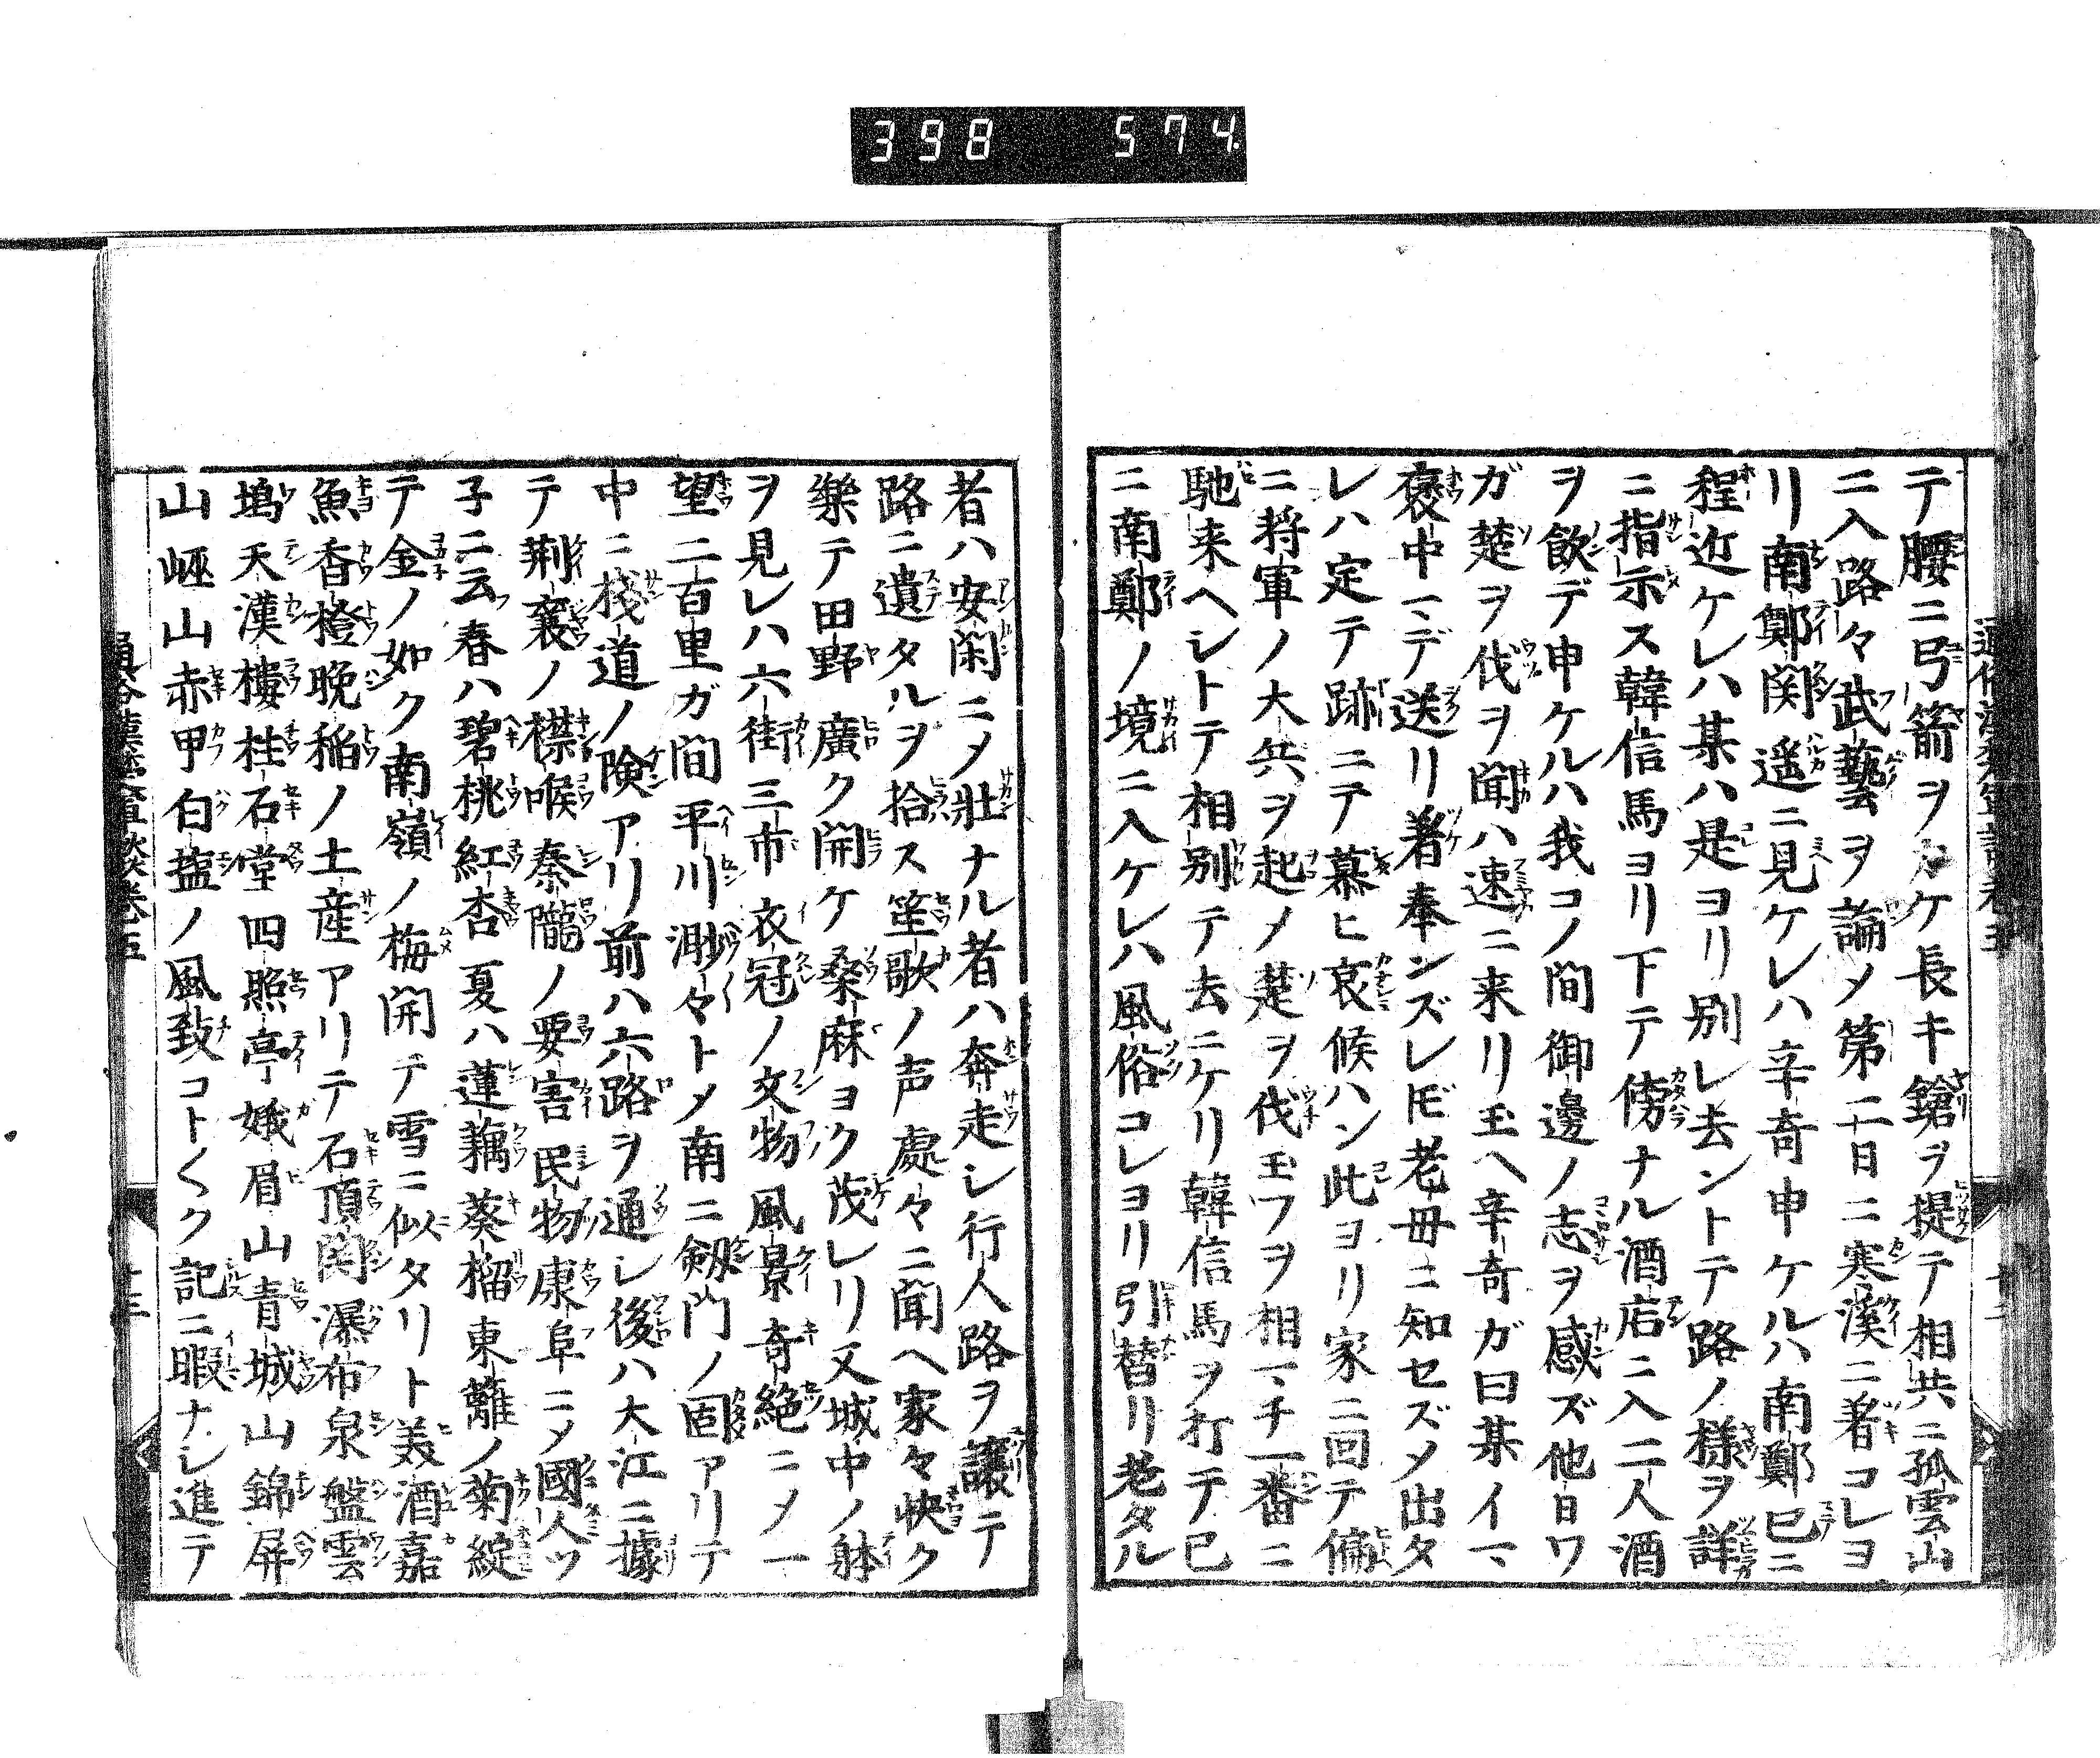 398 574
テ腰ニ弓箭ヲカケ長キ鎗ヲ提テ相共ニ孤雲山
ニ入路々武藝ヲ論メ第二日ニ寒溪ニ著コレヨ
リ南鄭関遥ニ見ケレハ辛奇申ケルハ南鄭已ニ
程近ケレハ某ハ是ヨリ別レ去ントテ路ノ様ヲ詳
ニ指示ス韓信馬ヨリ下テ傍ナル酒店ニ入二人酒
ヲ飲デ申ケルハ我コノ間御邊ノ志ヲ感ズ他日ワ
ガ楚ヲ伐ヲ聞ハ速ニ来リ玉ヘ辛奇ガ曰某イマ
褒中マデ送リ著奉ンズレ𪜈老母ニ知セズメ出タ
レハ定テ跡ニテ慕ヒ哀候ハン此ヨリ家ニ回テ偏
ニ将軍ノ大兵ヲ起メ楚ヲ伐玉フヲ相マチ一番ニ
馳来ヘシトテ相別テ去ニケリ韓信馬ヲ打テ已
ニ南鄭ノ境ニ入ケレハ風俗コレヨリ引替リ老タル
者ハ安閑ニメ壯ナル者ハ奔走シ行人路ヲ讓テ
路ニ遺タルヲ拾ス笙歌ノ声處々ニ聞ヘ家々快ク
樂テ田野廣ク開ケ桑麻ヨク茂レリ又城中ノ躰
ヲ見レハ六街三市衣冠ノ文物風景奇絶ニメ一
望二百里ガ間平川渺々トメ南ニ剱門ノ固アリテ
中ニ棧道ノ険アリ前ハ六路ヲ通シ後ハ大江ニ據
テ荆襄ノ襟喉秦隴ノ要害民物康阜ニメ國人ツ
子ニ云春ハ碧桃紅杏夏ハ蓮藕葵榴東籬ノ菊綻
テ金ノ如ク南嶺ノ梅開テ雪ニ似タリト美酒嘉
魚香橙晩稲ノ土産アリテ石頂関瀑布泉盤雲
塢天漢樓桂石堂四照亭娥眉山青城山錦屏
山崛山赤甲白塩ノ風致コト〱ク記ニ暇ナシ進テ